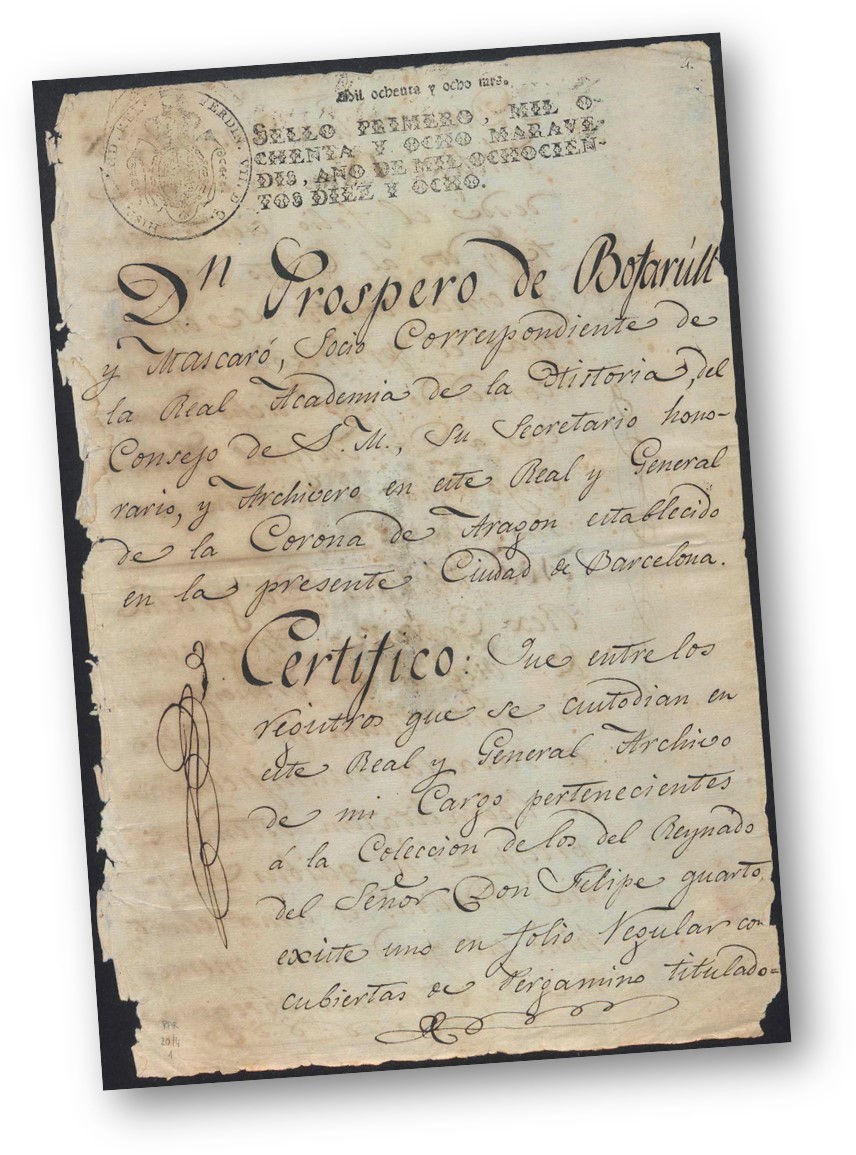 4.
Mil ochenta y ocho mrs.
HISP. ET IND. REX FERDIN. VII. D. G.
SELLO PRIMERO, MIL O-
CHENTA Y OCHO MARAVE-
DIS, AÑO DE MIL OCHOCIEN-
TOS DIEZ Y OCHO.
Dn. Prospero de Bofarúll
y Mascaró, Socio Correspondiente de
la Real Academia de la Historia, del
Consejo de S. M., su Secretario hono-
rario, y Archivero en este Real y General
de la Corona de Aragon establecido
en la presente Ciudad de Barcelona.
Certifico: Que entre los
registros que se custodian en
este Real y General Archivo
de mi Cargo pertenecientes
á la Coleccion de los del Reynado
del Señor Don Felipe quarto,
existe uno en folio Regular con
cubiertas de Pergamino titulado=